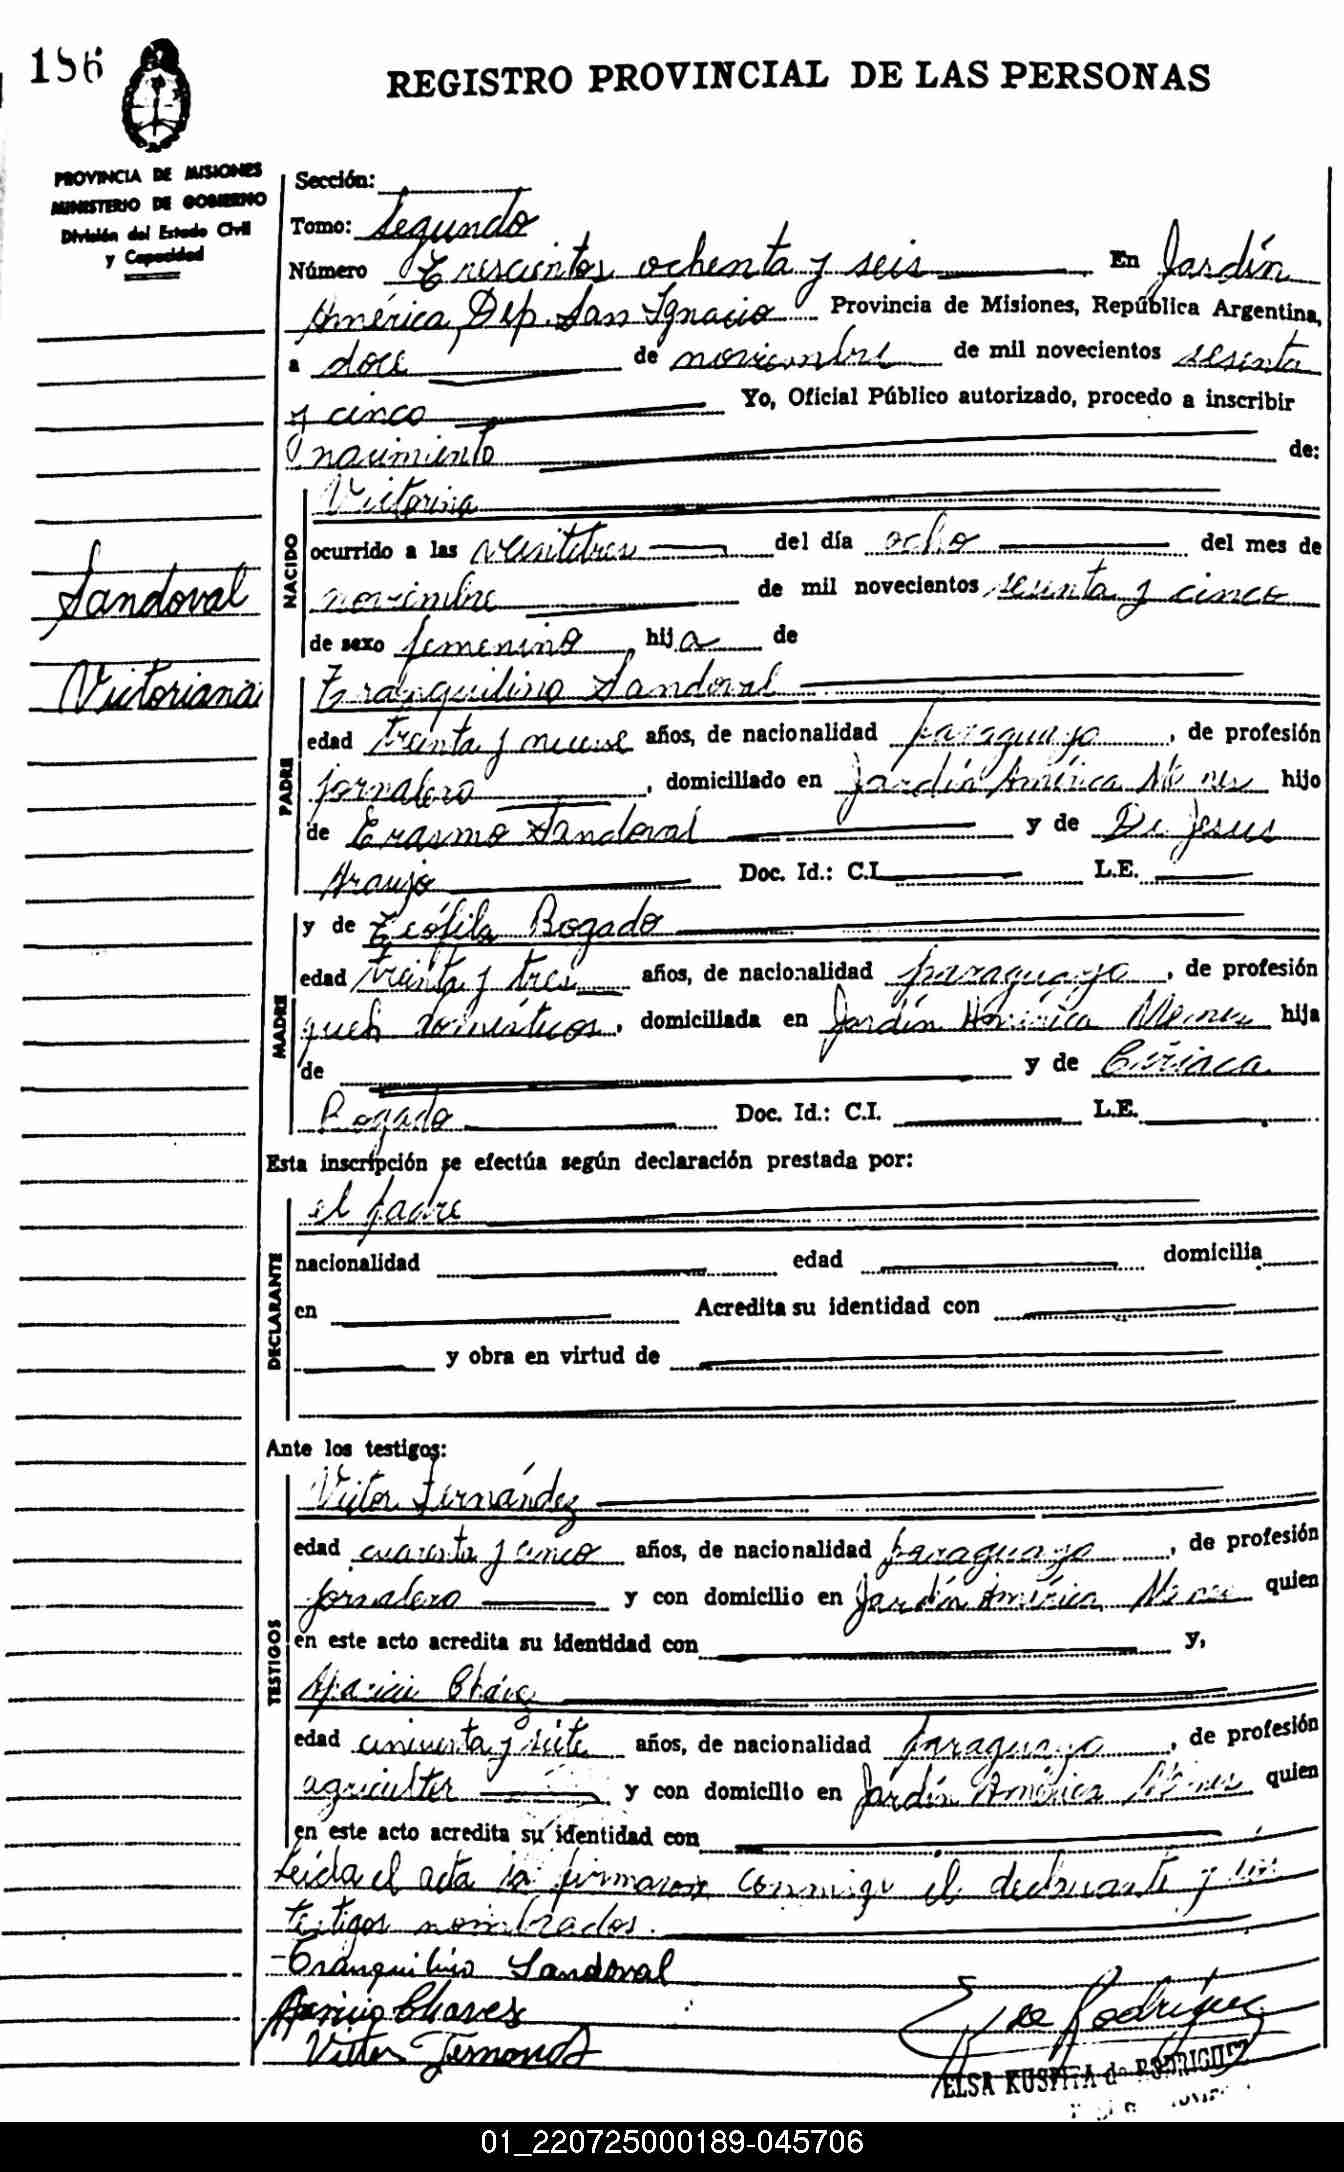 186
REGISTRO PROVINCIAL DE LAS PERSONAS
PROVINCIA DE MISIONES
MINISTERIO DE GOBIERNO
División del Estado Civil
y Capacidad
Sección:
Tomo: Segundo
Número Trescientos ochenta y seis En Jardín
América, Dep. San Ignacio Provincia de Misiones, República Argentina,
a doce de noviembre de mil novecientos sesenta
y cinco Yo, Oficial Público autorizado, procedo a inscribir
nacimiento de:
Victorina
NACIDO
ocurrido a las veintitres del día ocho del mes de
noviembre de mil novecientos sesenta y cinco
de sexo femenino hija de
Sandoval
Victoriana
Tranquilino Sandoval
PADRE
edad treinta y nueve años, de nacionalidad paraguayo, de profesión
jornalero, domiciliado en Jardín América Mnes hijo
de Erasmo Sandoval y de De Jesus
Araujo Doc. Id.: C.I. L.E.
y de Teófila Bogado
MADRE
edad treinta y tres años, de nacionalidad paraguaya, de profesión
queh domésticos, domiciliada en Jardín América Mnes hija
de y de Ciriaca
Bogado Doc. Id.: C.I. L.E.
Esta inscripción se efectúa según declaración prestada por:
el padre
DECLARANTE
nacionalidad edad domicilia
en Acredita su identidad con
y obra en virtud de
Ante los testigos:
Victor Fernández
TESTIGOS
edad cuarenta y cinco años, de nacionalidad paraguayo, de profesión
jornalero y con domicilio en Jardín América Mnes quien
en este acto acredita su identidad con y,
Cháve
edad cincuenta y siete años, de nacionalidad paraguayo, de profesión
agricultor y con domicilio en Jardín América Mnes quien
en este acto acredita su identidad con
Leída el acta la firmaron conmigo el declarante y los
testigos nombrados.
Tranquilino Sandoval
Chaves
Victor
Rodríguez
ELSA KUSPITA de RODRIGUEZ
01_220725000189-045706